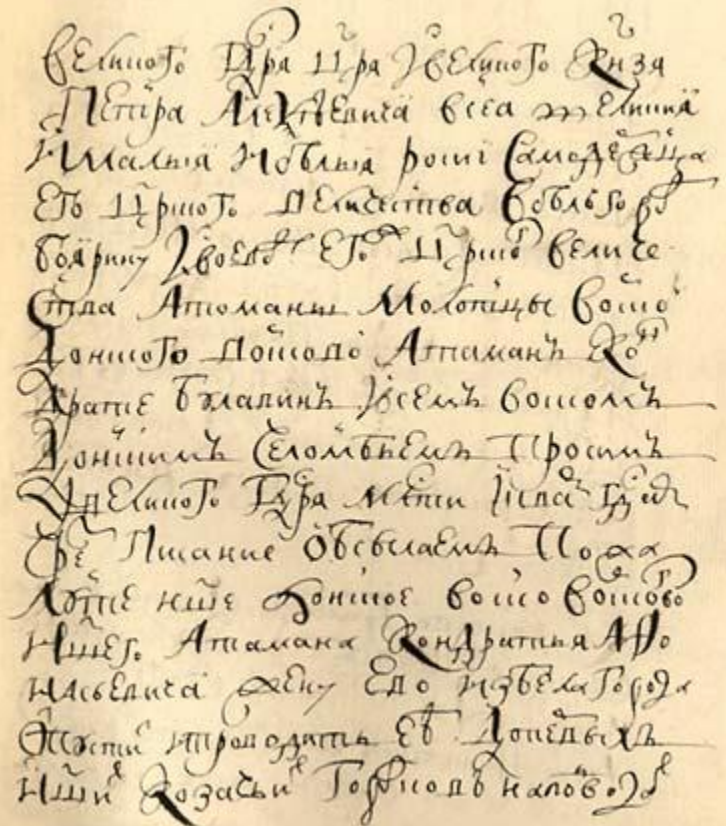 великого гдря цря и великого кнзя
Петра Алексѣевича всеа великия
и малыя и бѣлыя росиі самодержца
его црского величества в бѣлъгород
боярину и воеводе его црского величе
ства Атоманы Молотцы войско
донского войсково Атаманъ Кон
дратие Булавинъ и всемъ войскомъ
донскимъ челомбьемъ просимъ
у великого гдря млсти и у вас гдрй
писание обсылаемъ пожа
луйте нше донское войско войскового
ншего Атамана Кондратья Афо
насьевича жену ево из бела города
отпустит и проводить ев донецкихъ
нши козачьи городковъ